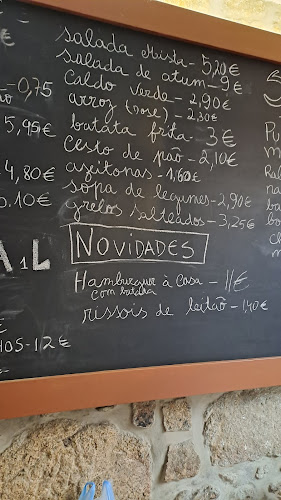 Salada Mista - 5,20€
salada de atum - 9€
caldo verde - 2,90€
arroz (dose) - 2,30€
batata frita - 3€
cesto de pão - 2,10€
azeitonas - 1,60€
sopa de legumes - 2,90€
grelos salteados - 3,25€
NOVIDADES
Hamburguer à Casa - 11€
com batata
rissóis de leitão - 1,40€
- 0,75
5,95€
4,80€
0.10€
A1L
- 12€